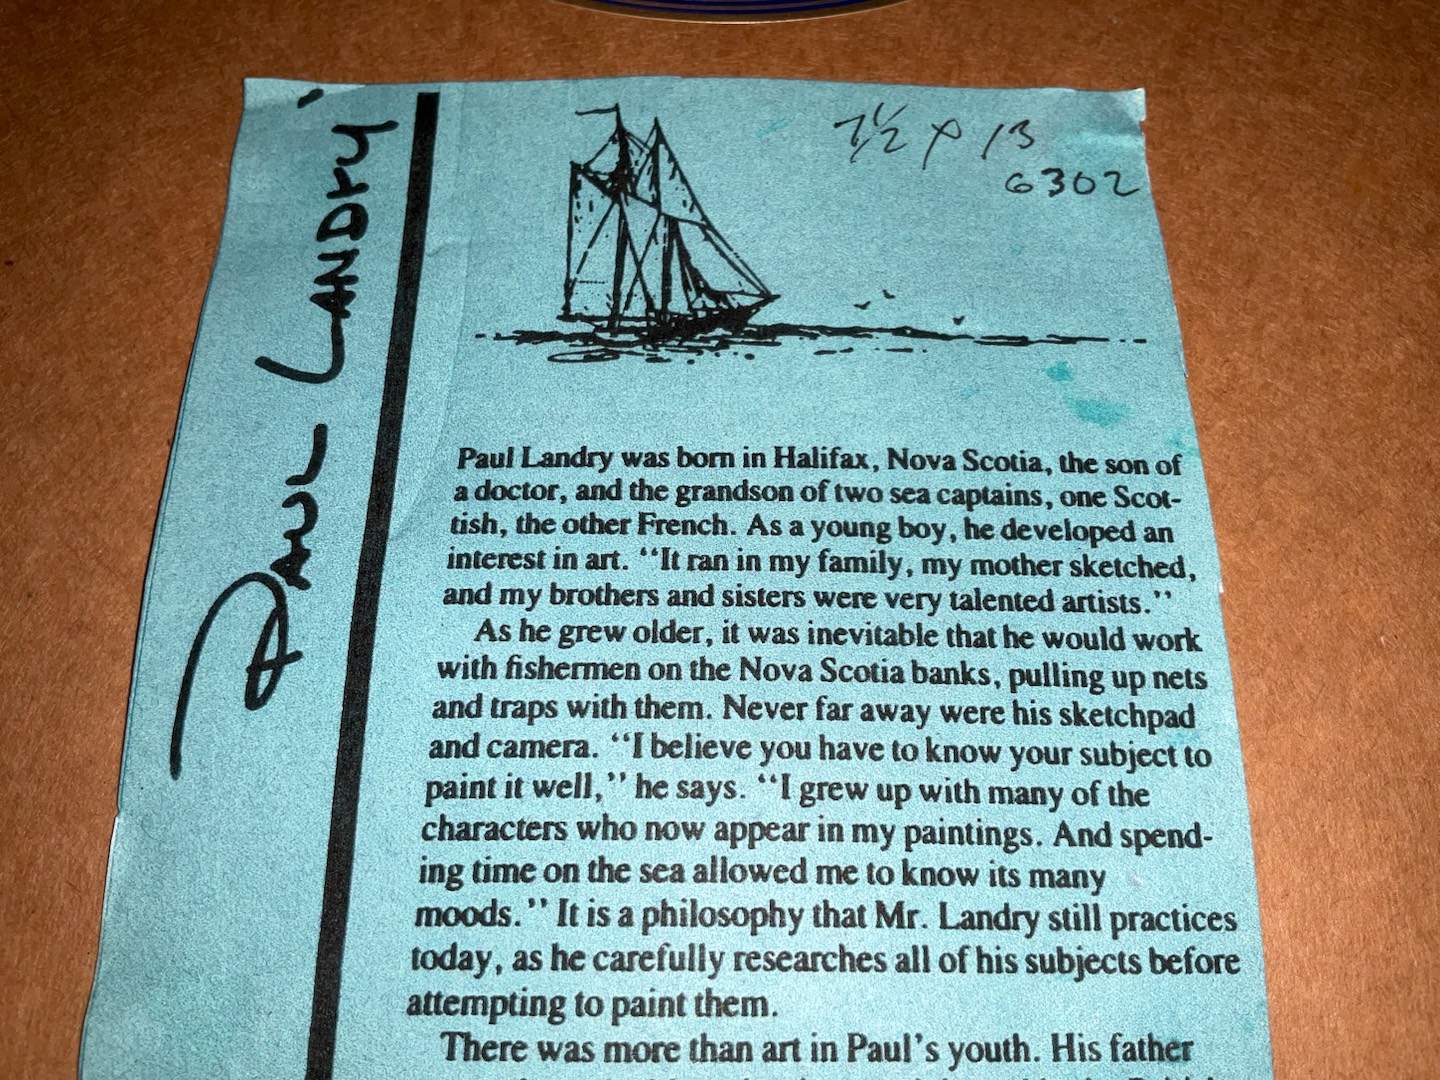 PAUL LANDRY
7 1/2 x 13
6302
Paul Landry was born in Halifax, Nova Scotia, the son of
a doctor, and the grandson of two sea captains, one Scot-
tish, the other French. As a young boy, he developed an
interest in art. "It ran in my family, my mother sketched,
and my brothers and sisters were very talented artists."
As he grew older, it was inevitable that he would work
with fishermen on the Nova Scotia banks, pulling up nets
and traps with them. Never far away were his sketchpad
and camera. "I believe you have to know your subject to
paint it well," he says. "I grew up with many of the
characters who now appear in my paintings. And spend-
ing time on the sea allowed me to know its many
moods." It is a philosophy that Mr. Landry still practices
today, as he carefully researches all of his subjects before
attempting to paint them.
There was more than art in Paul's youth. His father